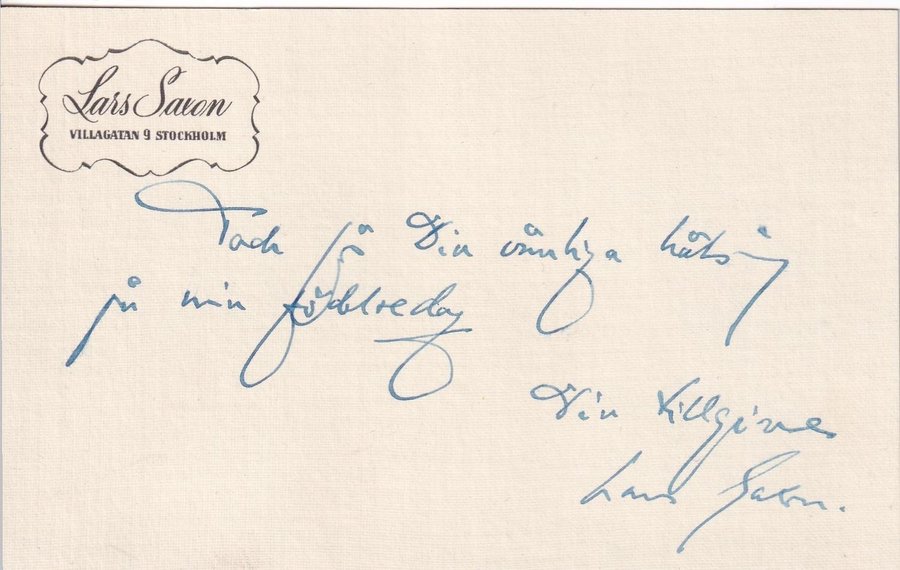 Lars Saxon
VILLAGATAN 9 STOCKHOLM
Tack för Din vänliga hälsning
på min födelsedag
Din tillgivne
Lars Saxon.